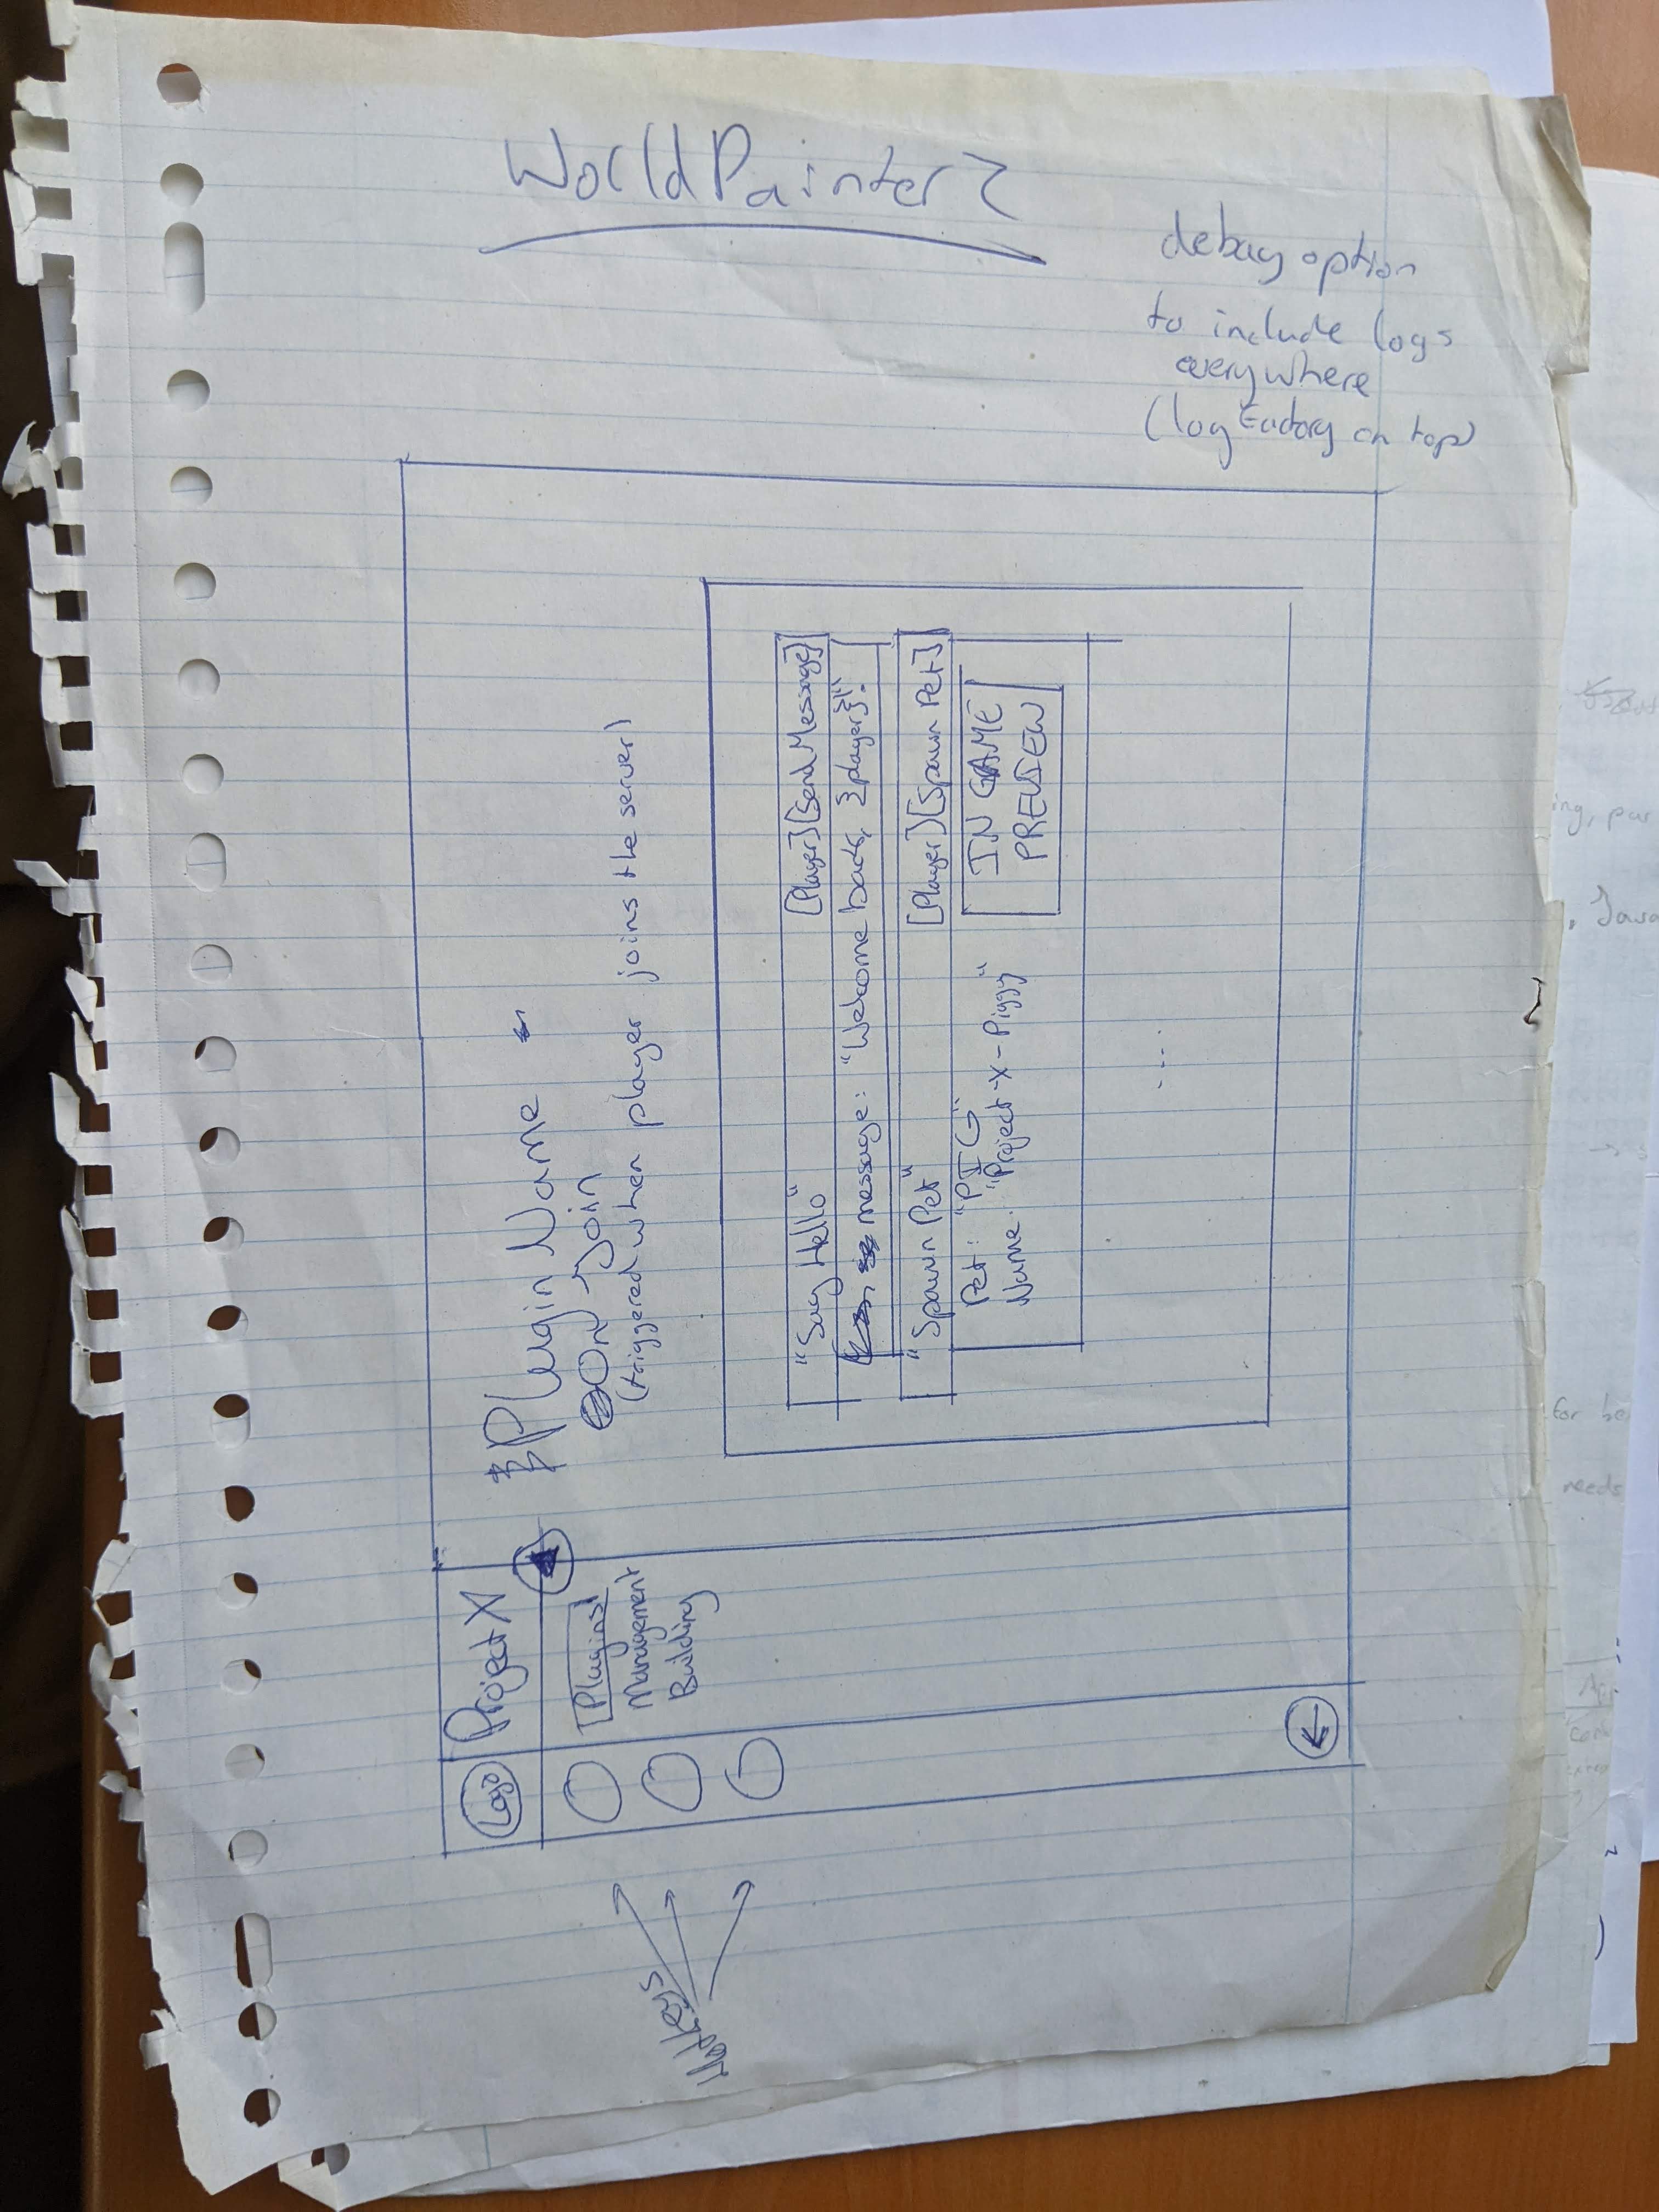 WorldPainter?
debug option
to include logs
everywhere
(log Factory on top)
Logo
Project X
Plugins
Management
Building
Plugin Name
On Join
(triggered when player joins the server)
"Say Hello" [Player][SendMessage]
message: "Welcome back, {player}!"
"Spawn Pet" [Player][Spawn Pet]
Pet: "PIG"
Name: "Project-X-Piggy"
IN GAME
PREVIEW
...
ing, par
, Java
→ s
for be
needs